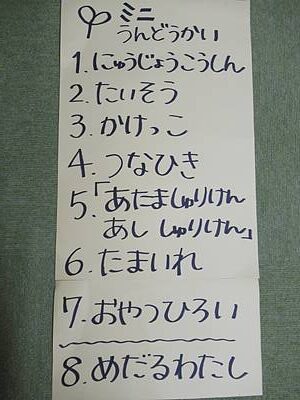 ミニ
うんどうかい
1. にゅうじょうこうしん
2. たいそう
3. かけっこ
4. つなひき
5. 「あたましゅりけん
あし しゅりけん」
6. たまいれ
7. おやつひろい
8. めだるわたし